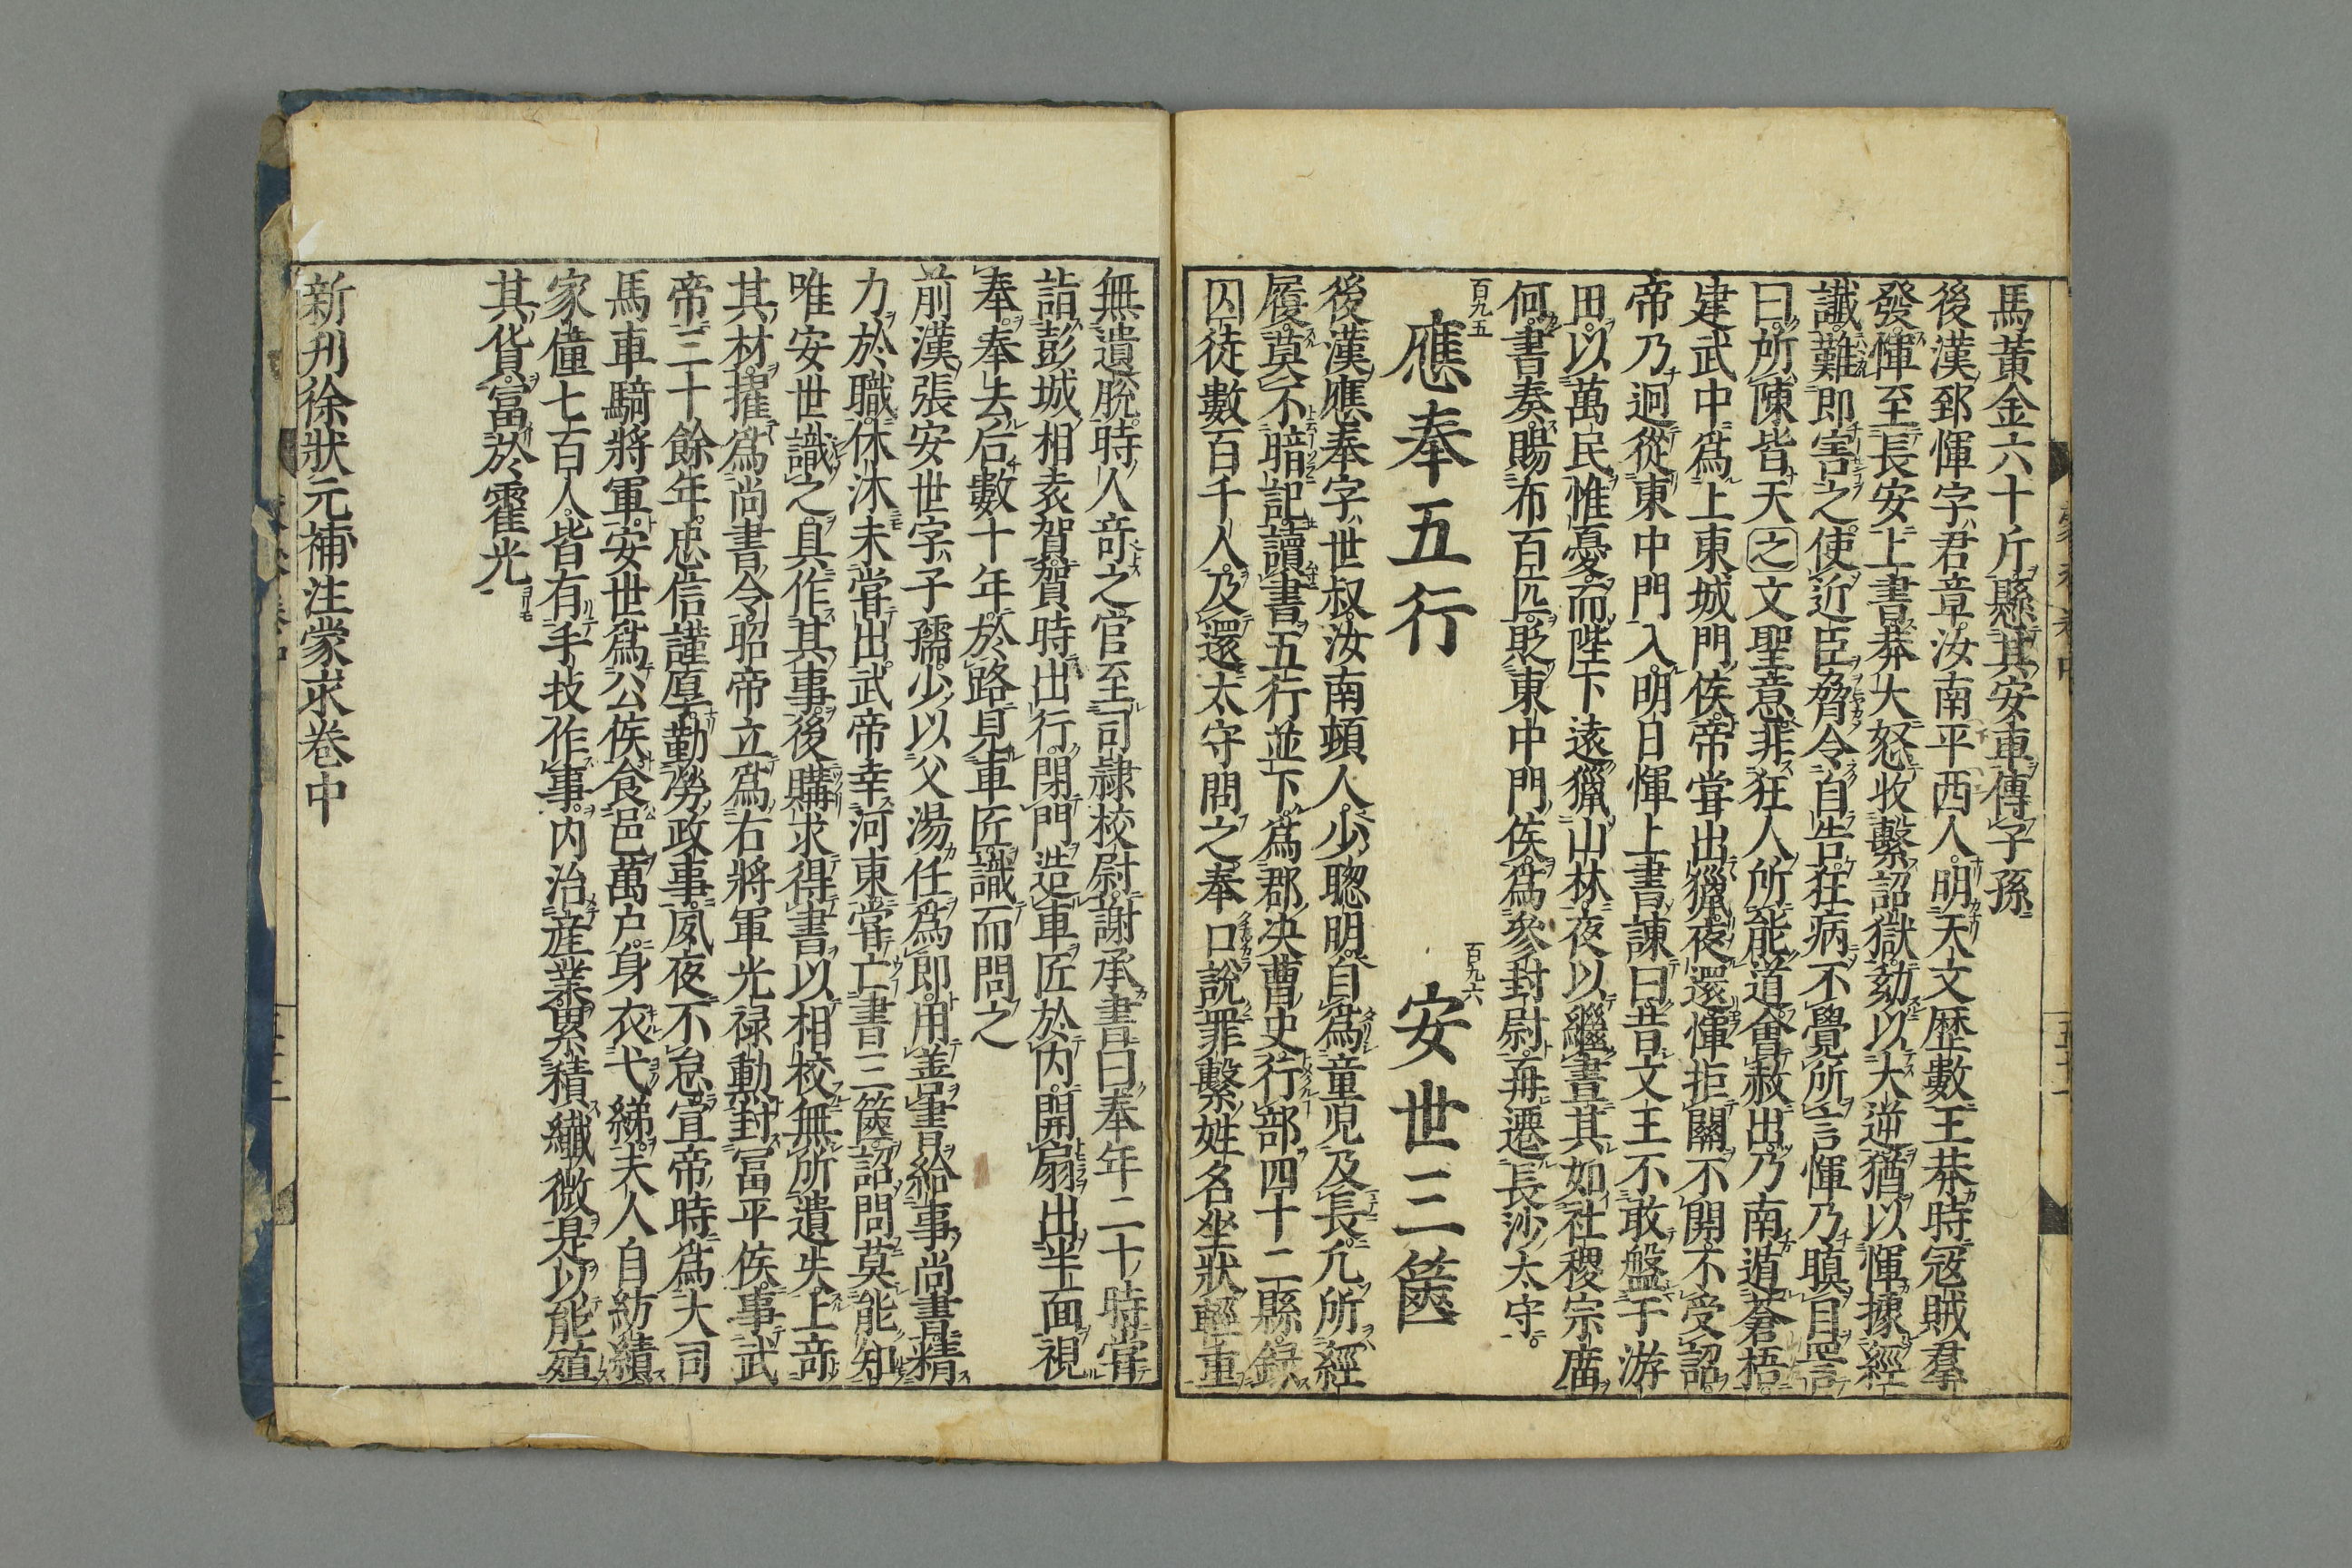 馬黃金六十斤縣其安車傳子孫
後漢郅惲字君章汝南平西人明天文歷數王莽時寇賊羣
發惲至長安上書莽大怒收繫詔獄劾以大逆猶以惲據經
讖難即害之使近臣脅令自告狂病不覺所言惲乃瞋目詈
曰所陳皆天之文聖意非狂人所能道會赦出乃南遁蒼梧
建武中爲上東城門侯帝嘗出獵夜還惲拒關不開不受詔
帝乃迴從東中門入明日惲上書諫曰昔文王不敢盤于游
田以萬民惟憂而陛下遠獵山林夜以繼晝其如社稷宗廣
何書奏賜布百匹貶東中門侯爲參封尉再遷長沙太守
百九五
應奉五行
百九六
安世三篋
後漢應奉字世叔汝南頓人少聰明自爲童兒及長凢所經
履莫不暗記讀書五行並下爲郡决曹史行部四十二縣録
囚徒數百千人乃還太守問之奉口說罪繫姓名坐狀輕重
無遺脫時人竒之官至司隷校尉謝承書曰奉年二十時嘗
詣彭城相袁賀賀時出行閉門造車匠於内開扇出半面視
奉奉去后數十年於路見車匠識而問之
前漢張安世字子孺少以父湯任爲郎用善書給事尚書精
力於職休沐未嘗出武帝幸河東嘗亡書三篋詔問莫能知
唯安世識之具作其事後購求得書以相校無所遺失上竒
其材擢爲尚書令昭帝立爲右將軍光禄勳封冨平侯事武
帝三十餘年忠信謹厚勤勞政事夙夜不怠宣帝時爲大司
馬車騎將軍安世爲公侯食邑萬戸身衣弋綈夫人自紡績
家僮七百人皆有手技作事内治産業累積纎微是以能殖
其貨富於霍光
新刋徐狀元補注蒙求卷中